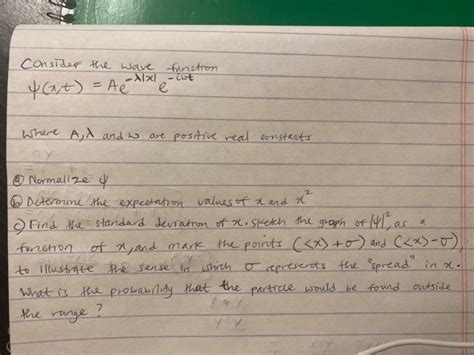 Consider the wave function
ψ(x,t) = Ae^-λ|x| e^-iωt
where A, λ and ω are positive real constants
ⓐ Normalize ψ
ⓑ Determine the expectation values of x and x²
c) Find the standard deviation of x. Sketch the graph of |ψ|², as a
function of x, and mark the points (<x>+σ) and (<x>-σ),
to illustrate the sense in which σ represents the "spread" in x.
What is the probability that the particle would be found outside
the range?